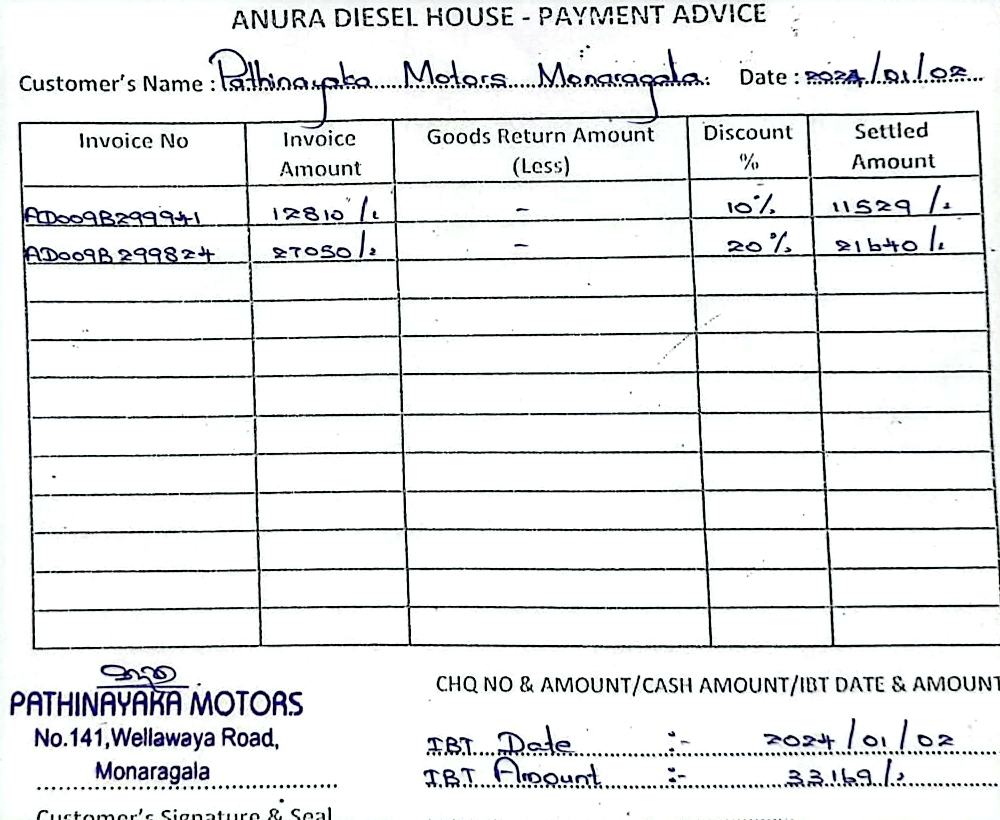 ANURA DIESEL HOUSE - PAYMENT ADVICE
Customer's Name : Pathinayaka Motors Monaragala. Date : 2024/01/02
Invoice No Invoice Amount Goods Return Amount (Less) Discount % Settled Amount
AD009B299941 12810/= - 10% 11529/=
AD009B299824 27050/= - 20% 21640/=
PATHINAYAKA MOTORS
No.141,Wellawaya Road,
Monaragala
Customer's Signature & Seal
CHQ NO & AMOUNT/CASH AMOUNT/IBT DATE & AMOUNT
IBT Date :- 2024/01/02
IBT Amount :- 33169/=